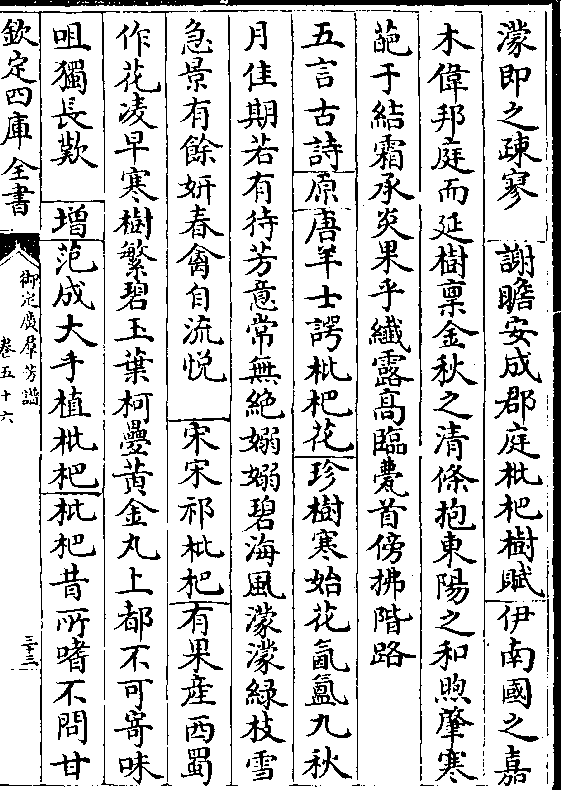 濛即之疎寥　謝瞻安成郡庭枇杷樹賦伊南國之嘉
木偉邦庭而延樹禀金秋之清條抱東陽之和煦肇寒
葩于結霜承炎果乎纖露高臨甍首傍拂階路
五言古詩原唐羊士諤枇杷花珍樹寒始花氤氲九秋
月佳期若有待芳意常無絶嫋嫋碧海風濛濛緑枝雪
急景有餘妍春禽自流悦　宋宋祁枇杷有果産西蜀
作花凌早寒樹繁碧玉葉柯疊黄金丸上都不可寄味
咀獨長歎　增范成大手植枇杷枇杷昔所嗜不問甘
欽定四庫全書
御定廣羣芳譜
卷五十六
三十三